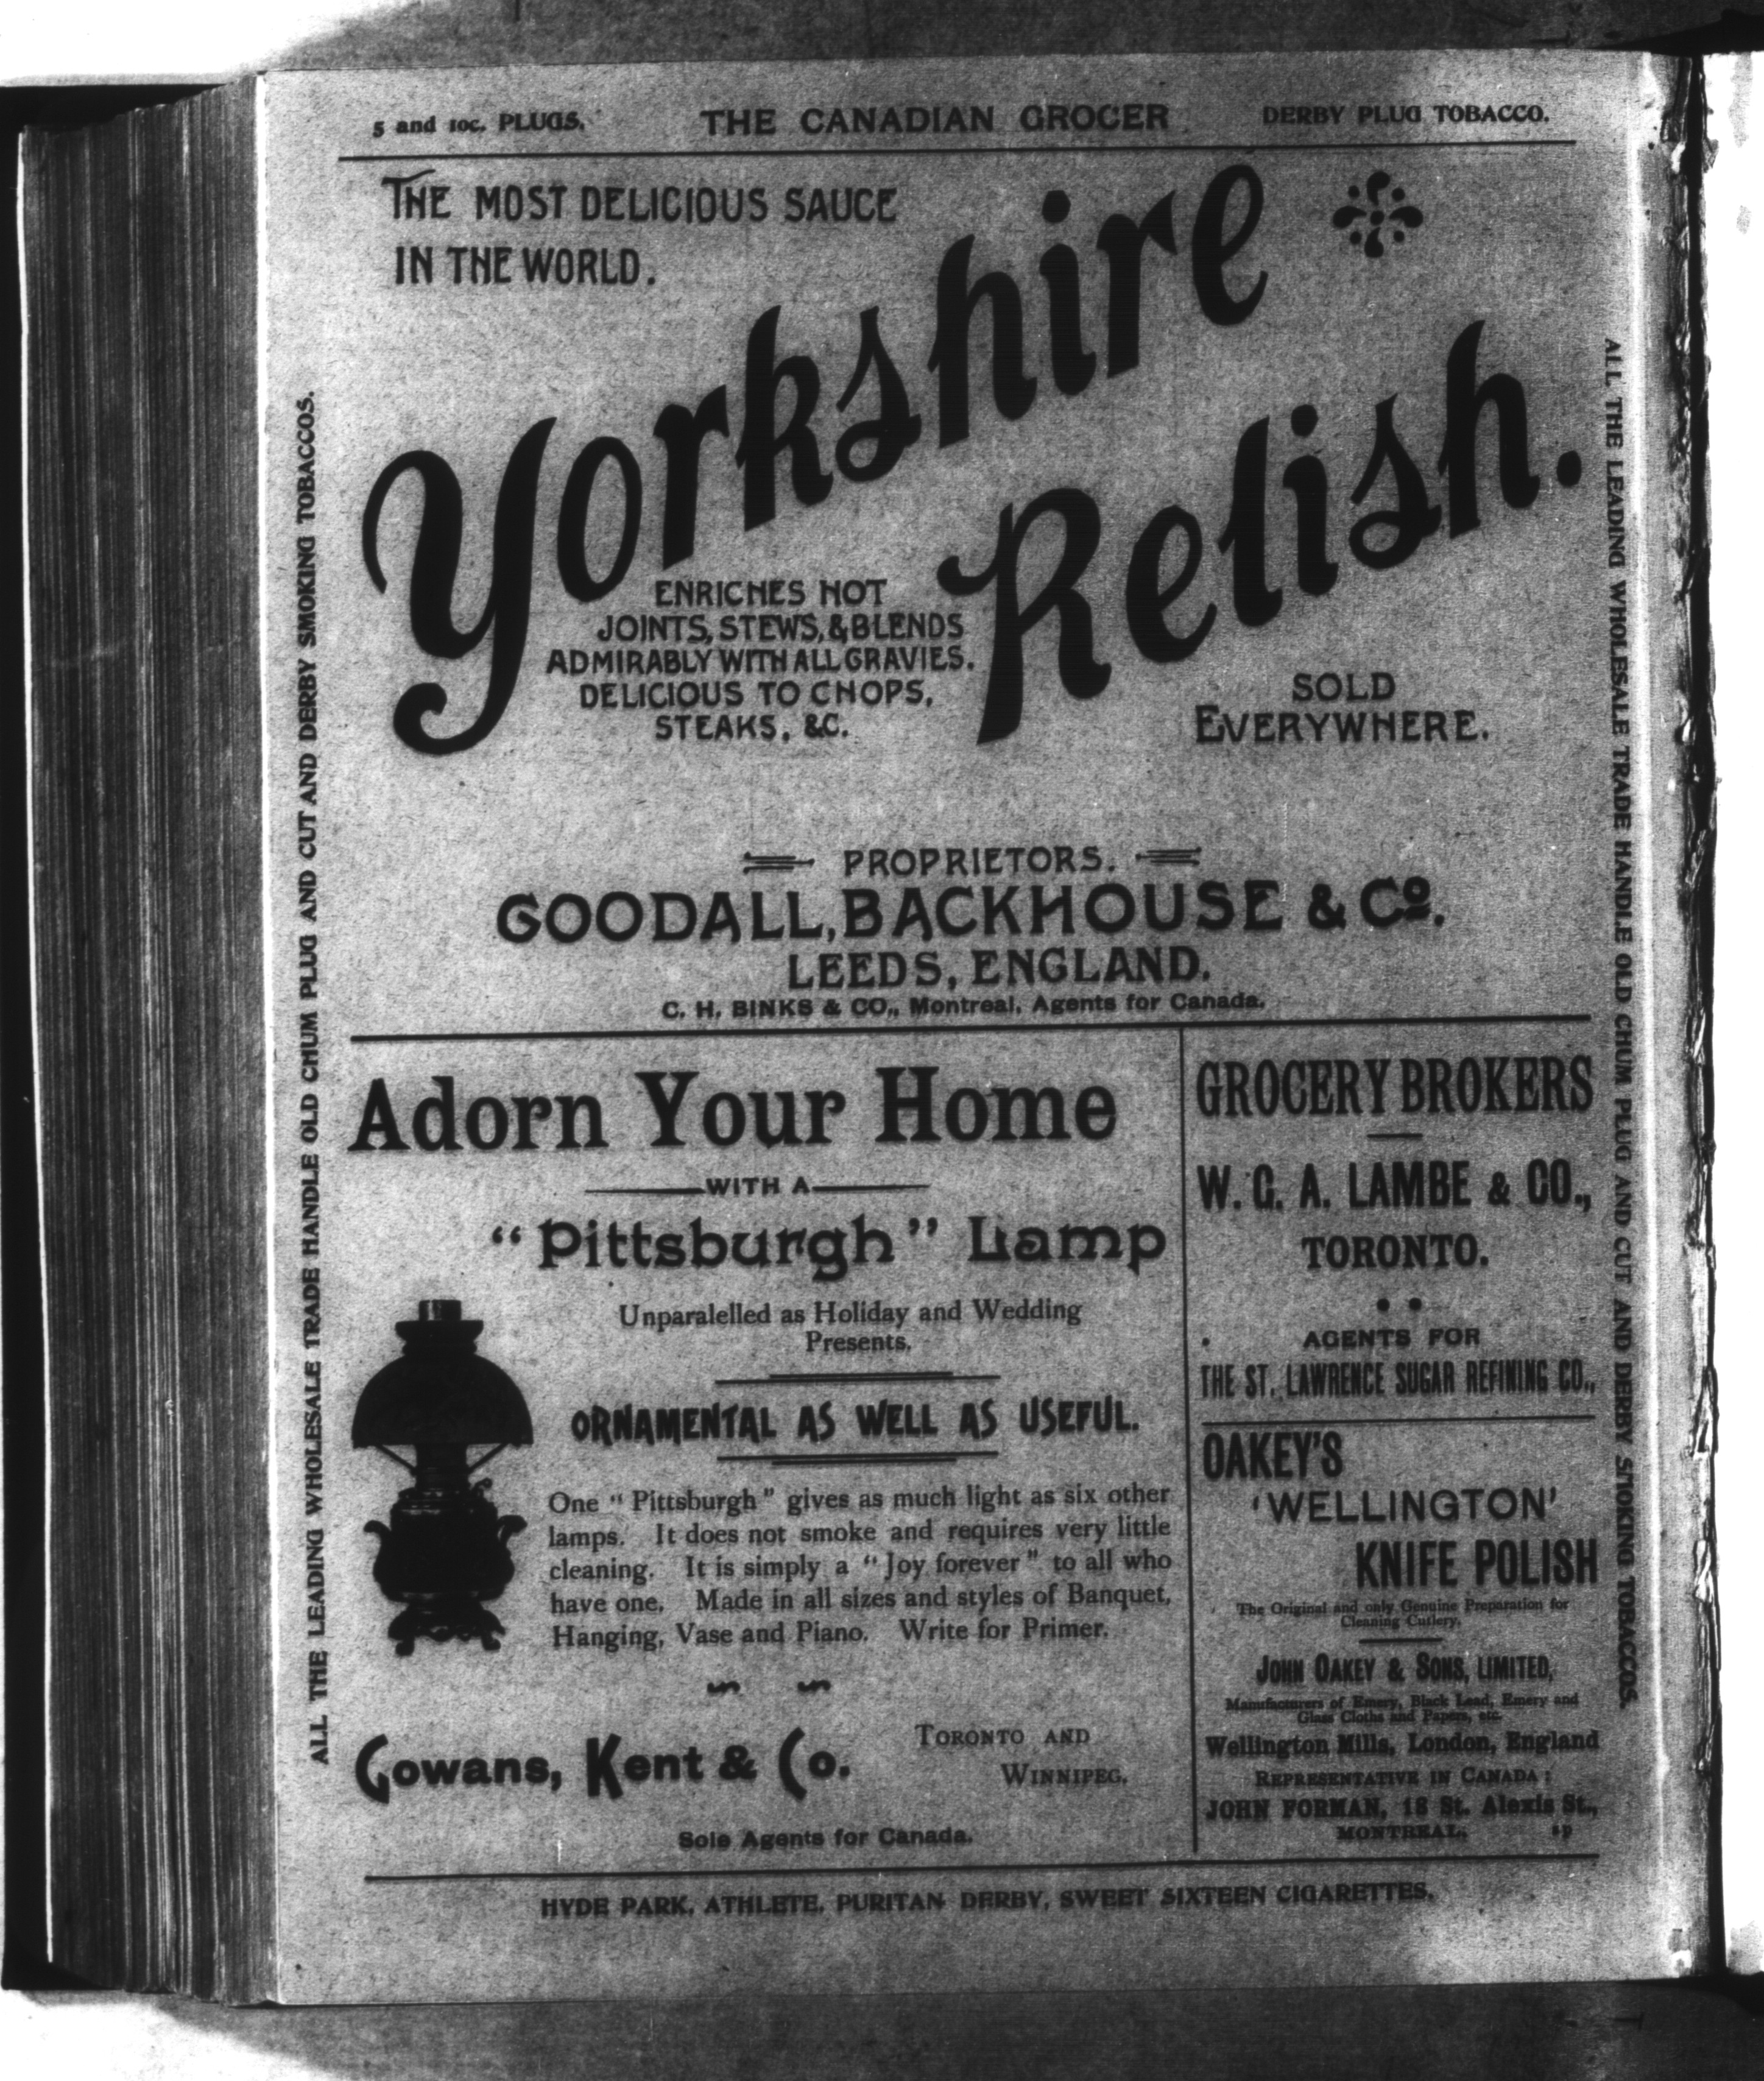 5 and 10c. PLUGS. THE CANADIAN GROCER DERBY PLUG TOBACCO.
THE MOST DELICIOUS SAUCE
IN THE WORLD.
Yorkshire
Relish.
ENRICHES HOT
JOINTS, STEWS, & BLENDS
ADMIRABLY WITH ALL GRAVIES.
DELICIOUS TO CHOPS,
STEAKS, &C.
SOLD
EVERYWHERE.
PROPRIETORS.
GOODALL, BACKHOUSE & Co.
LEEDS, ENGLAND.
C. H. BINKS & CO., Montreal, Agents for Canada.
Adorn Your Home
WITH A
"Pittsburgh" Lamp
Unparalelled as Holiday and Wedding
Presents.
ORNAMENTAL AS WELL AS USEFUL.
One "Pittsburgh" gives as much light as six other
lamps. It does not smoke and requires very little
cleaning. It is simply a "Joy forever" to all who
have one. Made in all sizes and styles of Banquet,
Hanging, Vase and Piano. Write for Primer.
Gowans, Kent & Co.
TORONTO AND
WINNIPEG.
Sole Agents for Canada.
GROCERY BROKERS
W. G. A. LAMBE & CO.,
TORONTO.
AGENTS FOR
THE ST. LAWRENCE SUGAR REFINING CO.,
OAKEY'S
'WELLINGTON'
KNIFE POLISH
The Original and only Genuine Preparation for
Cleaning Cutlery.
JOHN OAKEY & SONS, LIMITED,
Manufacturers of Emery, Black Lead, Emery and
Glass Cloths and Papers, etc.
Wellington Mills, London, England
REPRESENTATIVE IN CANADA:
JOHN FORMAN, 18 St. Alexis St.,
MONTREAL.
HYDE PARK, ATHLETE, PURITAN DERBY, SWEET SIXTEEN CIGARETTES.
ALL THE LEADING WHOLESALE TRADE HANDLE OLD CHUM PLUG AND CUT AND DERBY SMOKING TOBACCOS.
ALL THE LEADING WHOLESALE TRADE HANDLE OLD CHUM PLUG AND CUT AND DERBY SMOKING TOBACCOS.